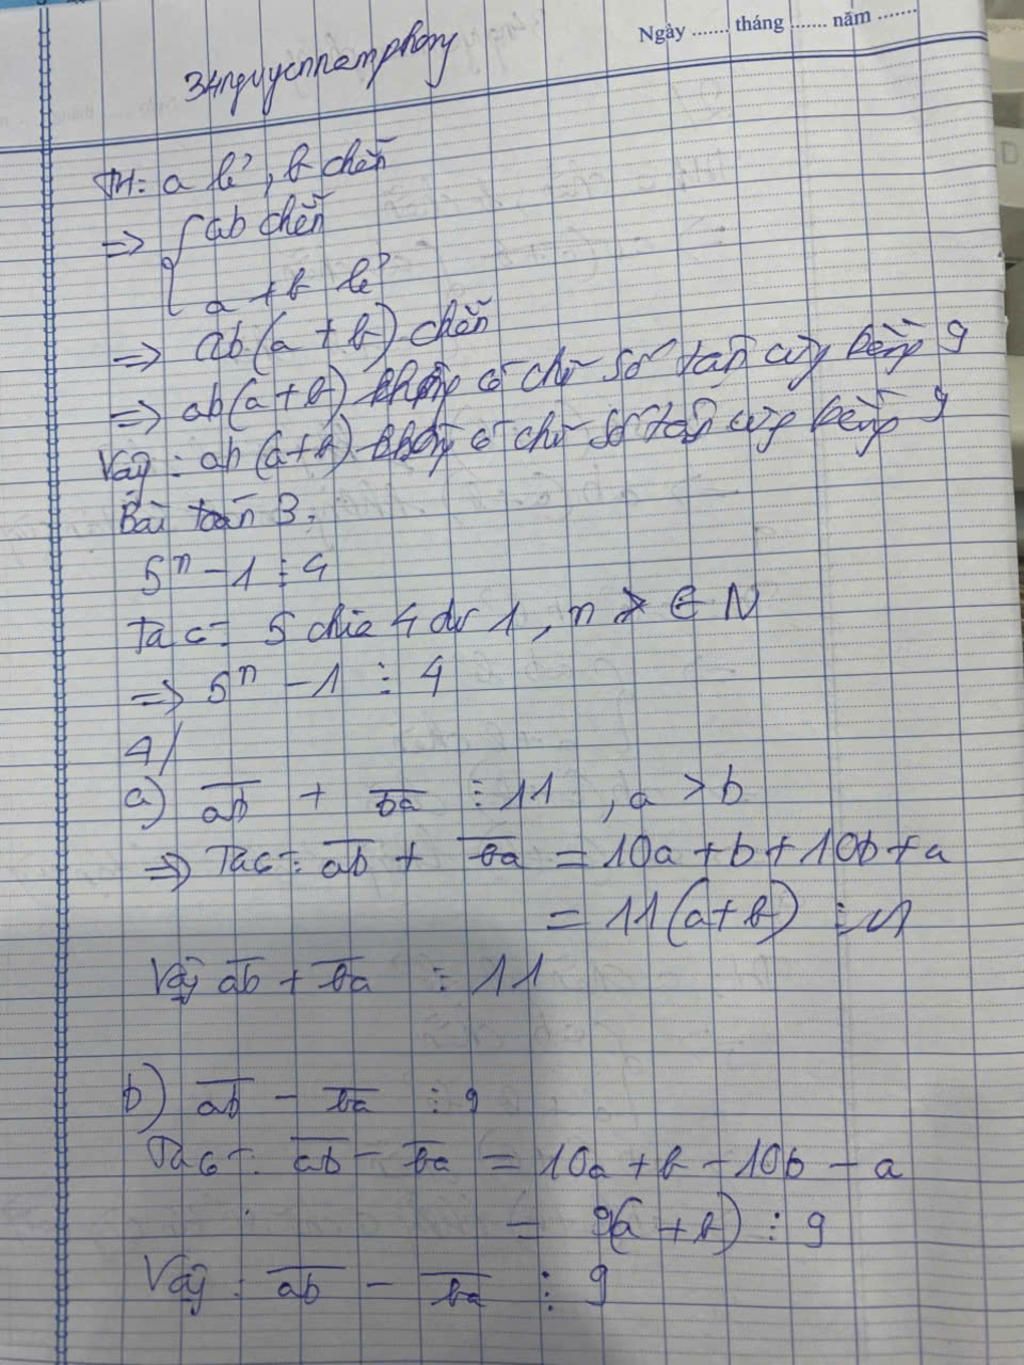 Ngày ....... tháng ....... năm .......
34nguyennamphong
TH: a lẻ, b chẵn
=> { ab chẵn
a + b lẻ
=> ab(a + b) chẵn
=> ab(a+b) không có chữ số tận cùng bằng 9
Vậy: ab(a+b) không có chữ số tận cùng bằng 9
Bài toán 3:
5ⁿ - 1 ⋮ 4
Ta có: 5 chia 4 dư 1, n ∈ N
=> 5ⁿ - 1 ⋮ 4
4/
a) a̅b̅ + b̅a̅ ⋮ 11, a > b
=> Ta có: a̅b̅ + b̅a̅ = 10a + b + 10b + a
= 11(a+b) ⋮ 11
Vậy a̅b̅ + b̅a̅ ⋮ 11
b) a̅b̅ - b̅a̅ ⋮ 9
Ta có: a̅b̅ - b̅a̅ = 10a + b - 10b - a
= 9(a + b) ⋮ 9
Vậy: a̅b̅ - b̅a̅ ⋮ 9